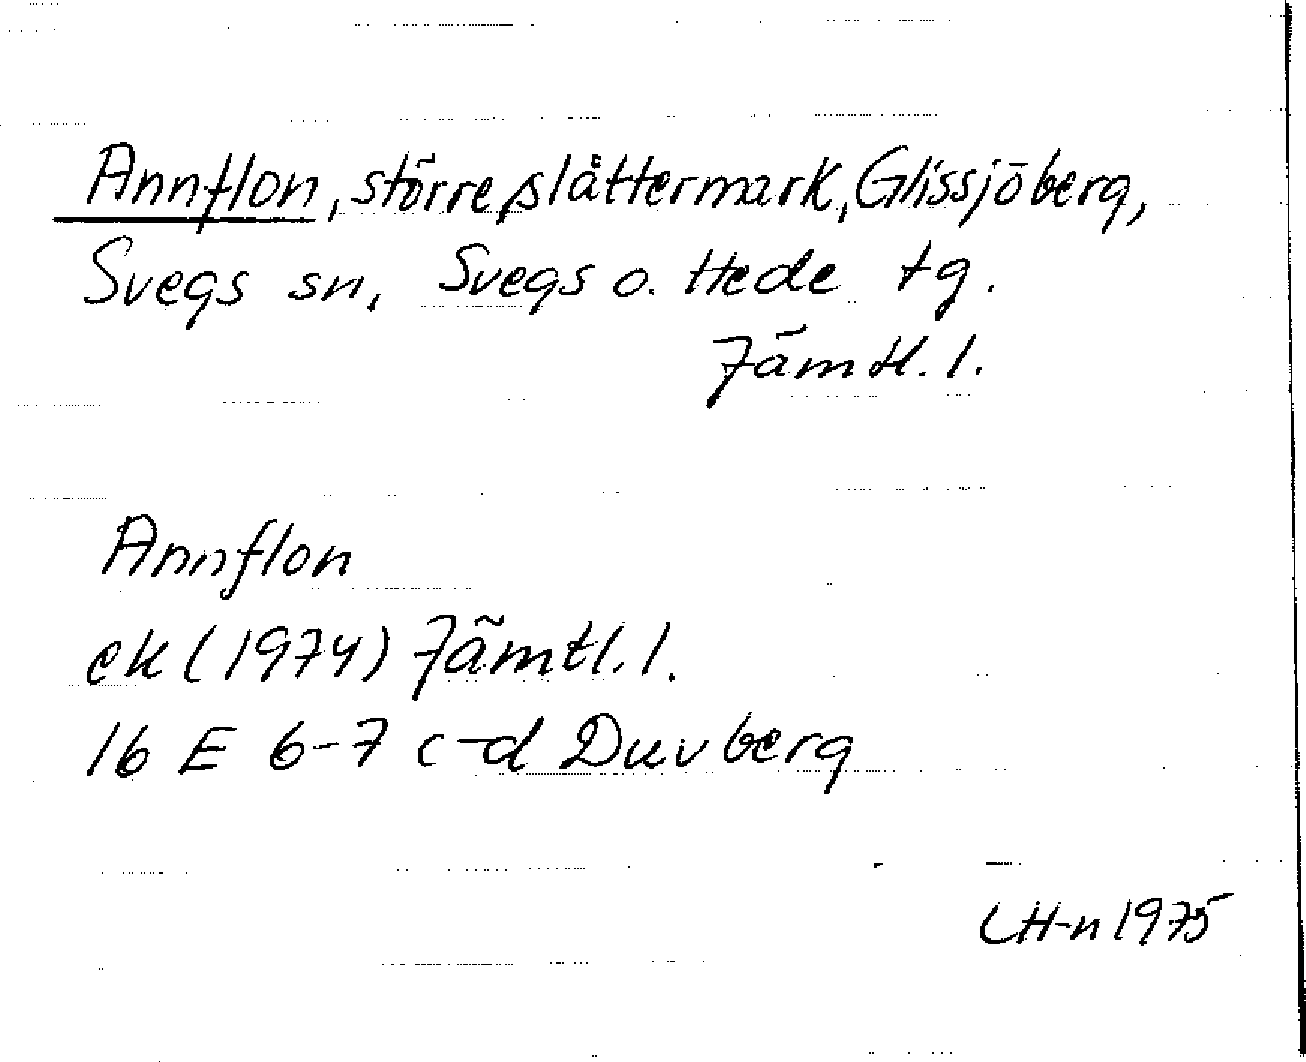 Annflon, större slåttermark, Glissjöberg,
Svegs sn, Svegs o. Hede tg.
Jämtl. l.
Annflon
ek (1974) Jämtl. l.
16 E 6-7 c-d Duvberg
LH-n 1975